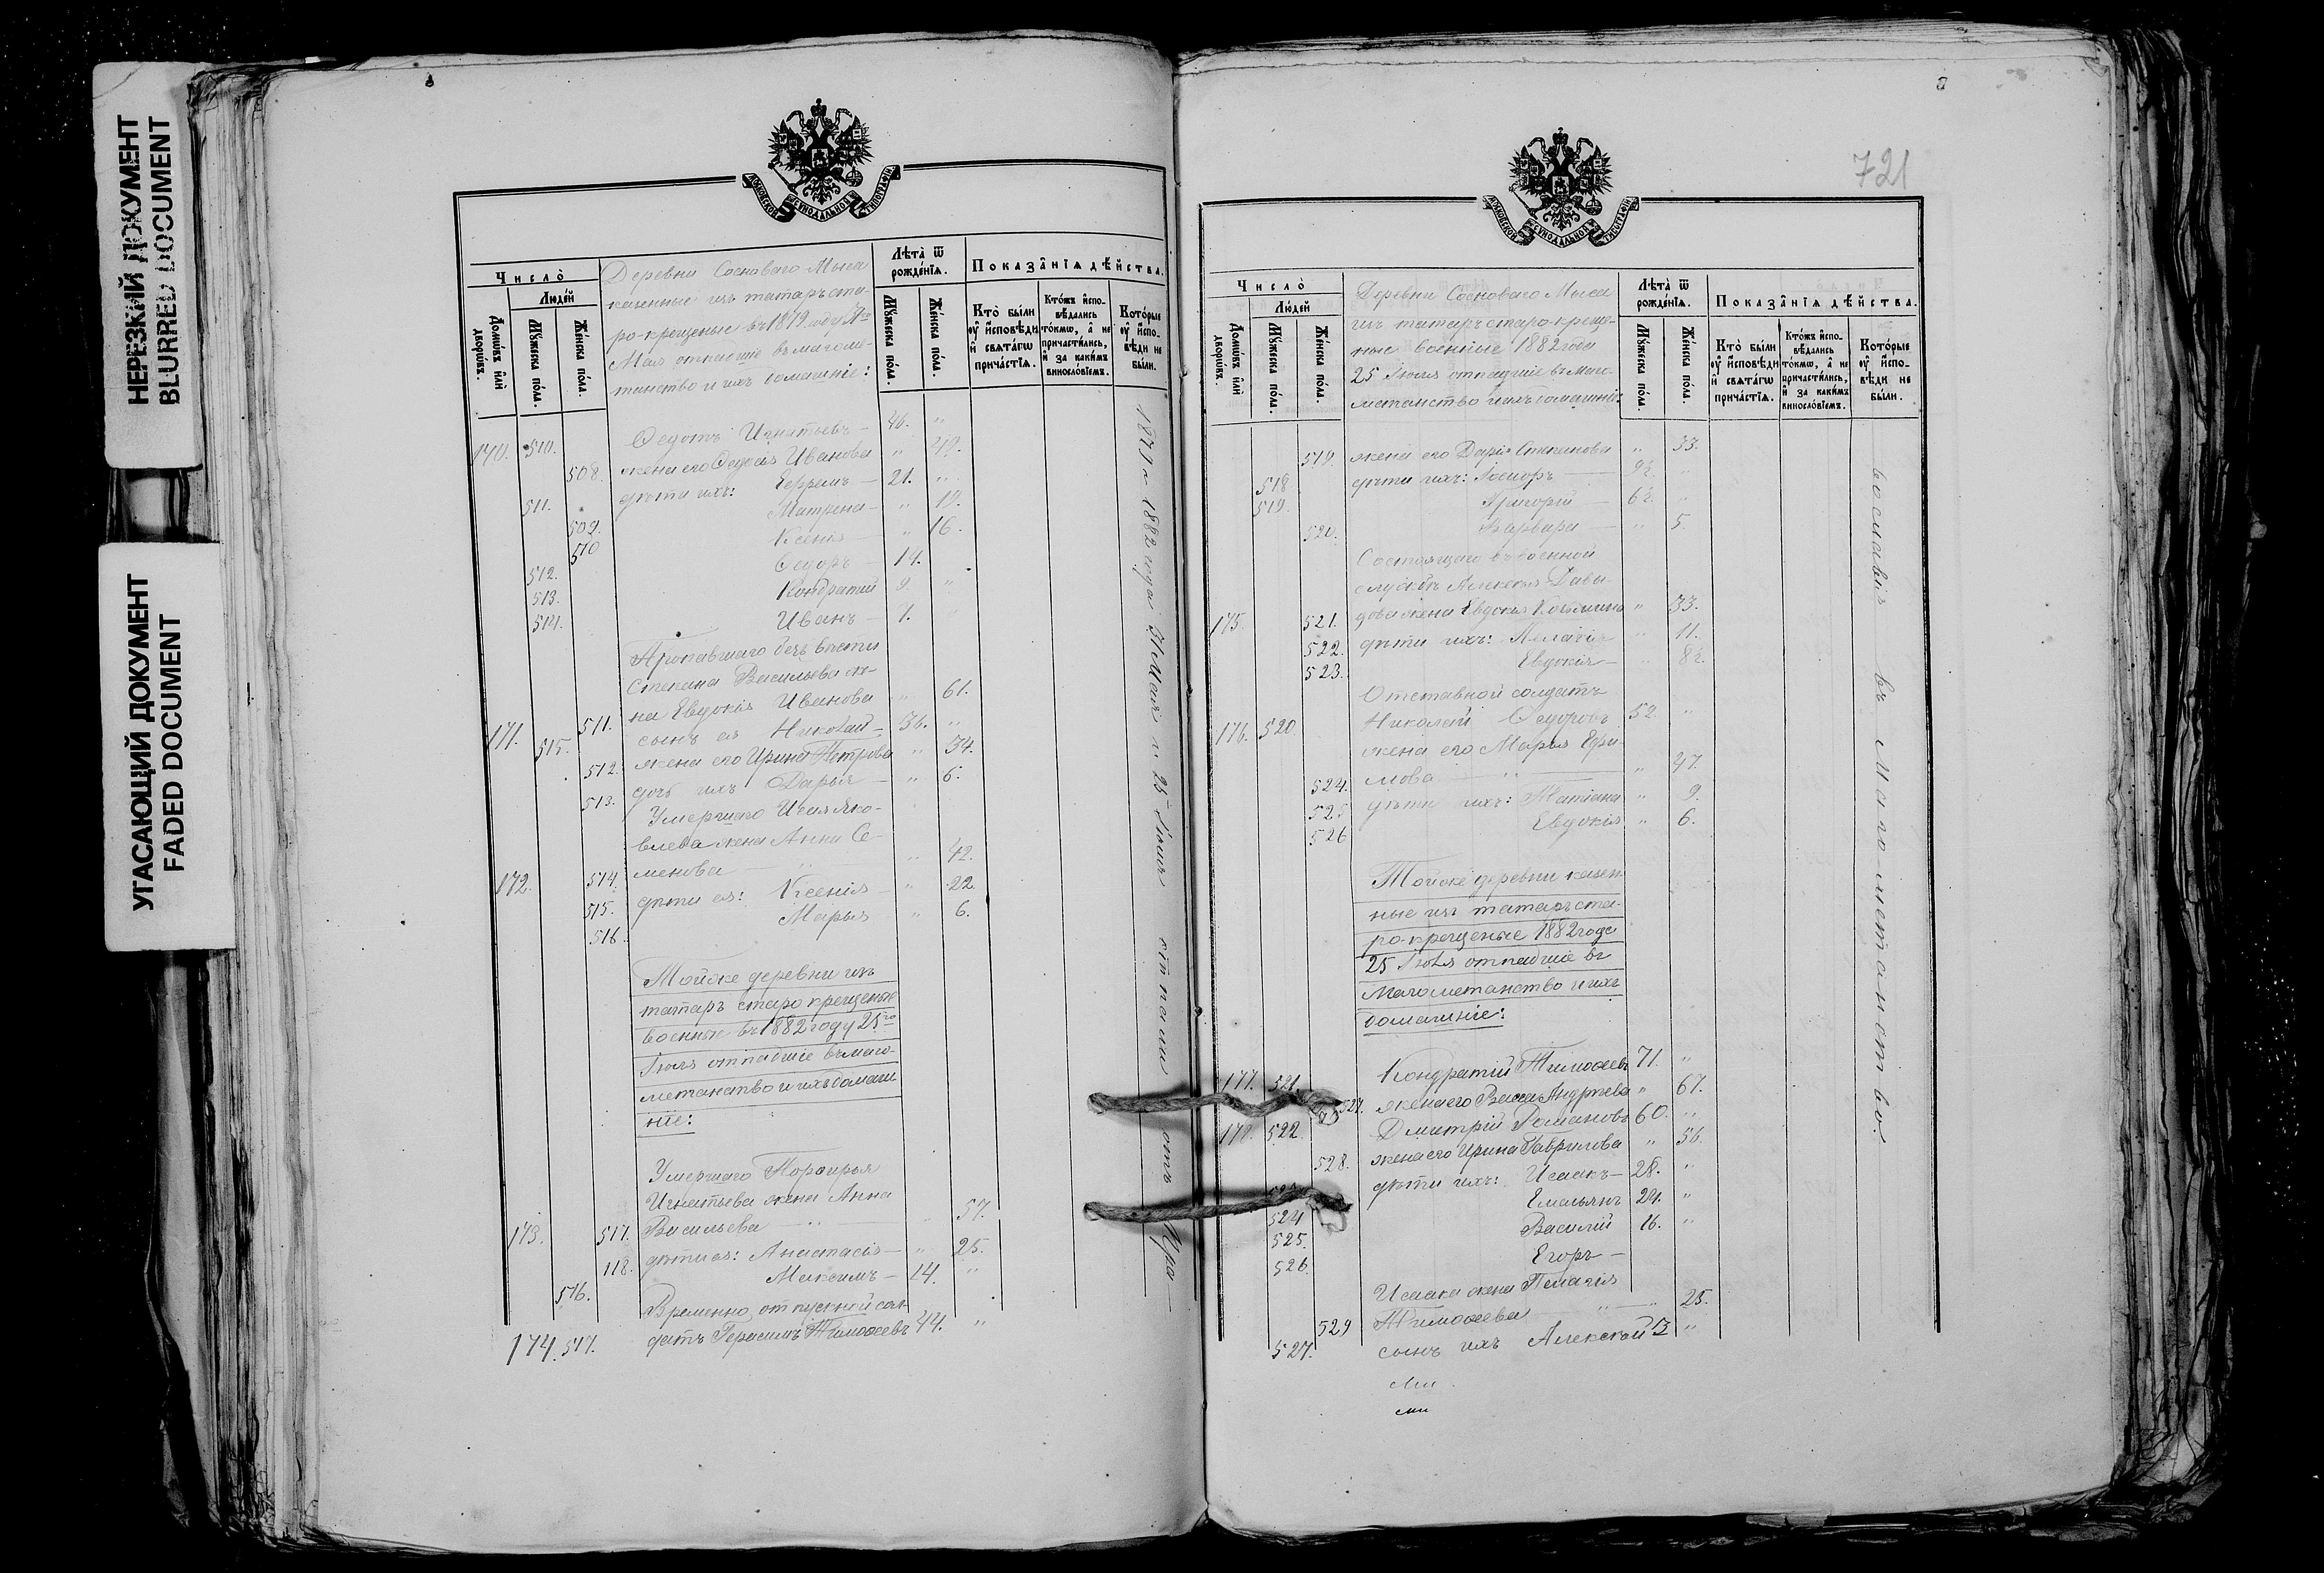 НЕРЕЗКИЙ ДОКУМЕНТ
BLURRED DOCUMENT
УГАСАЮЩИЙ ДОКУМЕНТ
FADED DOCUMENT
МОСКОВСКОЙ СѴНОДАЛЬНОЙ ТИПОГРАФІИ
Число̀
Людей
Домѡвъ или дворѡвъ.
Мꙋжеска пола.
Женска пола.
Деревни Сосноваго Мыса
казенные изъ татаръ ста-
ро-крещеные въ 1879 году 7го
Мая отпавшіе въ магоме-
танство и ихъ домашніе:
Лѣта ѿ рожденїѧ.
Мꙋжеска пола.
Женска пола.
Показанїѧ дѣйства.
Кто были ᲂу҆ исповѣди и свѧтагѡ причастїѧ.
Ктожъ исповѣдались токмѡ, а не причастились, и за какимъ винословїемъ.
Которые ᲂу҆ исповѣди не были.
170. 510. Ѳедотъ Игнатьевъ — 46. "
508. жена его Ѳедосія Иванова " 42.
511. дѣти ихъ: Ефремъ — 21. "
509. Матрена — " 19.
510 Ксенія — " 16.
512. Ѳедоръ — 14.
513. Кондратій 9. "
514. Иванъ — 7.
Пропавшаго безъ вѣсти
Степана Васильева же-
171. 511. на Евдокія Иванова " 61.
515. сынъ ея Николай — 36. "
512. жена его Ирина Петрова " 34.
513. дочь ихъ Дарья — " 6.
Умершаго Исая Яко-
влева жена Анна Се-
172. 514. менова — " 42.
515. дѣти ея: Ксенія — " 22.
516. Марья " 6.
Той же деревни изъ
татаръ старокрещеные
военные въ 1882 году 25го
Іюля отпавшіе въ маго-
метанство и ихъ домаш-
ніе:
Умершаго Порфирья
Игнатьева жена Анна
173. 517. Васильева — " 57.
118. дѣти ея: Анастасія — " 25.
516. Максимъ — 14. "
Временно отпускной сол-
174. 517. датъ Герасимъ Тимоѳеевъ 44. "
1879 и 1882 года 7 Мая и 25 Іюля отпали отъ Пра-
721
МОСКОВСКОЙ СѴНОДАЛЬНОЙ ТИПОГРАФІИ
Число̀
Людей
Домѡвъ или дворѡвъ.
Мꙋжеска пола.
Женска пола.
Деревни Сосноваго Мыса
изъ татаръ старо-креще-
ные военные 1882 года
25 Іюля отпавшіе въ маго-
метанство и ихъ домашніе:
Лѣта ѿ рожденїѧ.
Мꙋжеска пола.
Женска пола.
Показанїѧ дѣйства.
Кто были ᲂу҆ исповѣди и свѧтагѡ причастїѧ.
Ктожъ исповѣдались токмѡ, а не причастились, и за какимъ винословїемъ.
Которые ᲂу҆ исповѣди не были.
519. жена его Дарія Степанова " 33.
518 дѣти ихъ:
519. Григорій — "
520. Варвара — " 5.
Состоящаго въ военной
службѣ Алексѣя Давы-
175. 521. дова жена Евдокія " 33.
522. дѣти ихъ: Пелагія " 11.
523. Евдокія — "
Отставной солдатъ
176. 520 Николай Ѳедоровъ 52 "
жена его Марья Ефи-
524. мова — " 47.
525 дѣти ихъ: Татіана " 9.
526 Евдокія " 6.
Той же деревни казен-
ные изъ татаръ ста-
ро-крещеные 1882 года
25 Іюля отпавшіе въ
Магометанство и ихъ
домашніе:
177. 521. Кондратій Тимоѳеевъ 71. "
527. жена его Васса Андреева " 67.
178. 522. Дмитрій Романовъ 60. "
528. жена его Ирина Гаврилова " 56.
дѣти ихъ: Исаакъ — 28. "
524 Емельянъ 24. "
525. Василій 16. "
526. Егоръ —
Исаака жена Пелагія
529 Тимоѳеева " 25.
527. сынъ ихъ Алексѣй 3 "
вославія въ Магометанство.